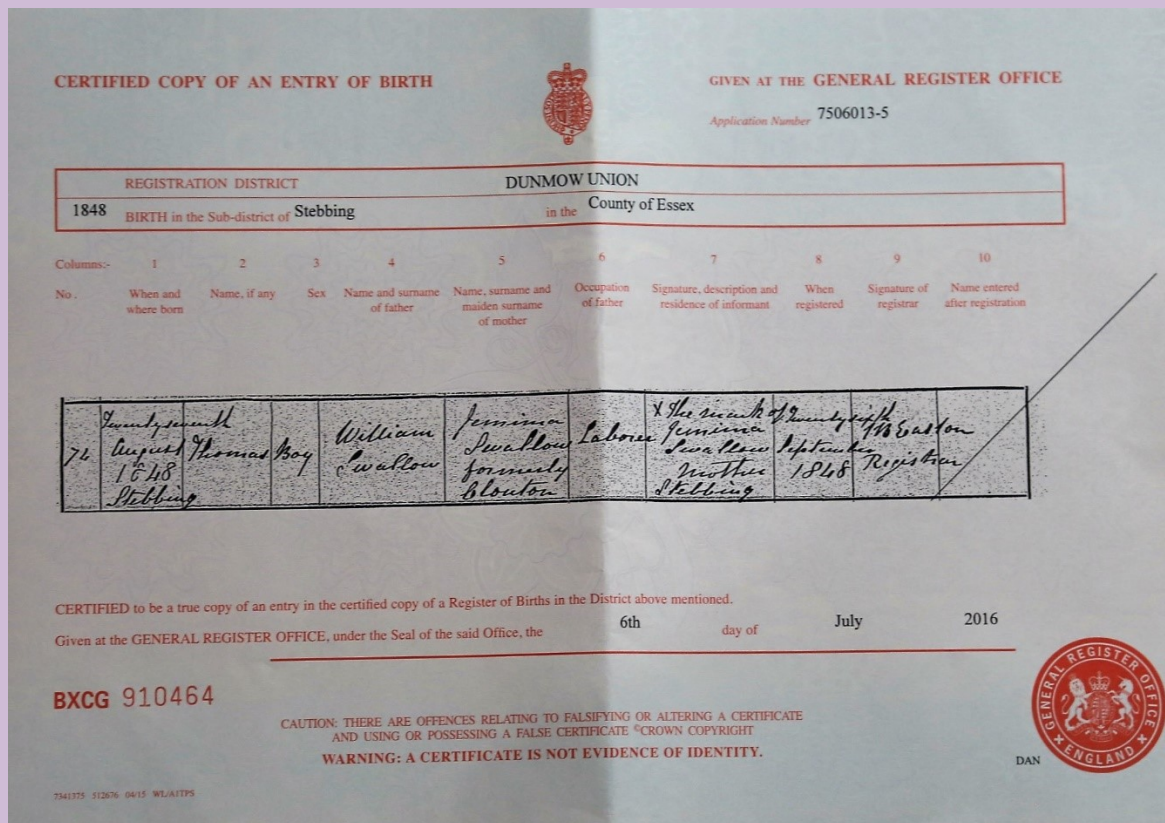 CERTIFIED COPY OF AN ENTRY OF BIRTH
GIVEN AT THE GENERAL REGISTER OFFICE
Application Number 7506013-5
REGISTRATION DISTRICT DUNMOW UNION
1848 BIRTH in the Sub-district of Stebbing in the County of Essex
Columns:- 1 2 3 4 5 6 7 8 9 10
No. When and where born Name, if any Sex Name and surname of father Name, surname and maiden surname of mother Occupation of father Signature, description and residence of informant When registered Signature of registrar Name entered after registration
74
Twenty seventh
August
1848
Stebbing
Thomas
Boy
William
Swallow
Jemima
Swallow
formerly
Clouton
Laborer
X The mark of
Jemima
Swallow
Mother
Stebbing
Twenty sixth
September
1848
Registrar
CERTIFIED to be a true copy of an entry in the certified copy of a Register of Births in the District above mentioned.
Given at the GENERAL REGISTER OFFICE, under the Seal of the said Office, the 6th day of July 2016
BXCG 910464
CAUTION: THERE ARE OFFENCES RELATING TO FALSIFYING OR ALTERING A CERTIFICATE
AND USING OR POSSESSING A FALSE CERTIFICATE ©CROWN COPYRIGHT
WARNING: A CERTIFICATE IS NOT EVIDENCE OF IDENTITY.
GENERAL REGISTER OFFICE
ENGLAND
DAN
7341375 512676 04/15 WL/AITPS